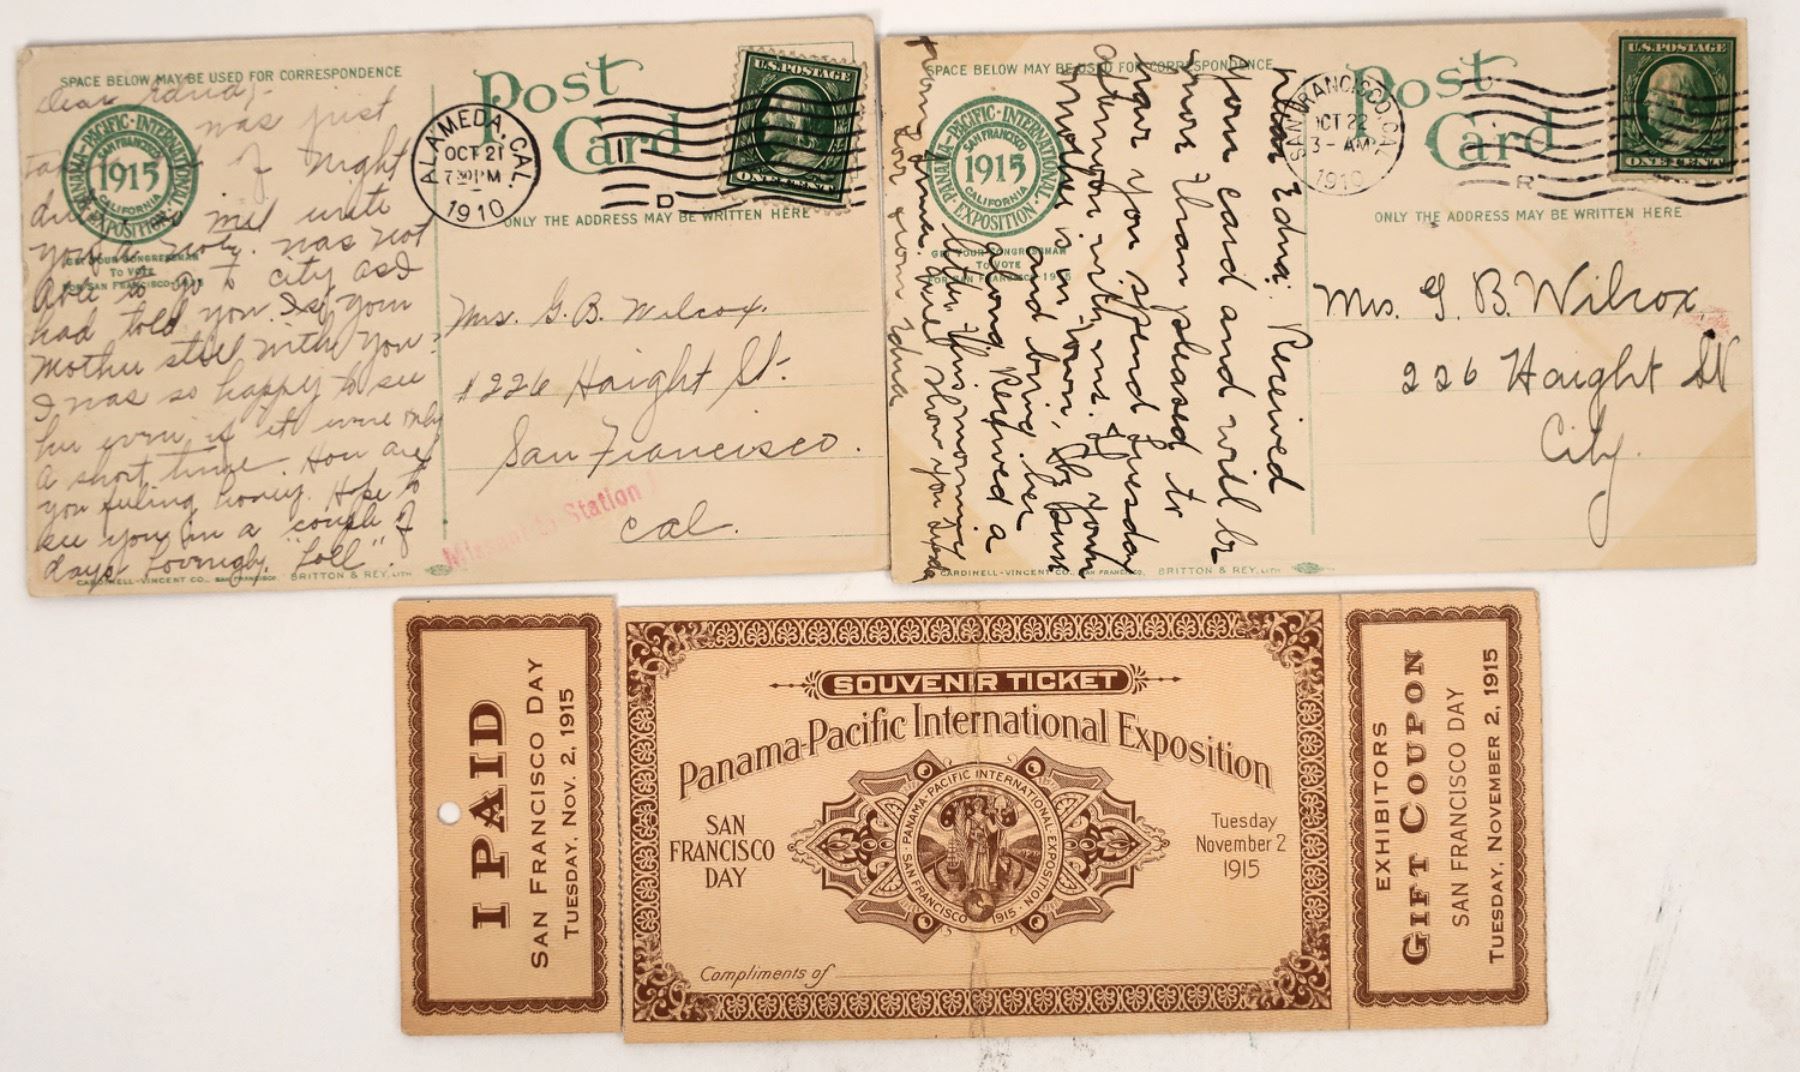 SPACE BELOW MAY BE USED FOR CORRESPONDENCE
Post
Card
PANAMA-PACIFIC-INTERNATIONAL
SAN FRANCISCO
1915
CALIFORNIA
EXPOSITION
GET YOUR CONGRESSMAN
TO VOTE
FOR SAN FRANCISCO-1915
ALAMEDA, CAL.
OCT 21
7 30 PM
1910
D
U.S. POSTAGE
ONE CENT
ONLY THE ADDRESS MAY BE WRITTEN HERE
Dear Edna;-
was just
of night
write
you a note. was not
able to go to city as I
had told you. Is your
Mother still with you?
I was so happy to see
her even if it were only
a short time. How are
you feeling honey. Hope to
see you in a couple of
days Lovingly. "Loll".
Mrs. G. B. Wilcox.
#226 Haight St.
San Francisco.
Cal.
Station
CARDINELL-VINCENT CO., SAN FRANCISCO. BRITTON & REY, LITH
SPACE BELOW MAY BE USED FOR CORRESPONDENCE
Post
Card
PANAMA-PACIFIC-INTERNATIONAL
SAN FRANCISCO
1915
CALIFORNIA
EXPOSITION
GET YOUR CONGRESSMAN
TO VOTE
FOR SAN FRANCISCO 1915
SAN FRANCISCO, CAL.
OCT 22
3- AM
1910
R
U.S. POSTAGE
ONE CENT
ONLY THE ADDRESS MAY BE WRITTEN HERE
Dear Edna: Received
your card and will be
more than pleased to
have you spend Tuesday
afternoon with me. If your
mother is in town, be sure
and bring her
along. Received a
letter this morning
from Will show you Tuesday
Love from Edna
Mrs. G. B. Wilcox,
226 Haight St
City.
CARDINELL-VINCENT CO., SAN FRANCISCO. BRITTON & REY, LITH
I PAID
SAN FRANCISCO DAY
TUESDAY, NOV. 2, 1915
SOUVENIR TICKET
Panama-Pacific International Exposition
SAN
FRANCISCO
DAY
PANAMA-PACIFIC INTERNATIONAL EXPOSITION
SAN FRANCISCO 1915
Tuesday
November 2
1915
Compliments of
EXHIBITORS
GIFT COUPON
SAN FRANCISCO DAY
TUESDAY, NOVEMBER 2, 1915